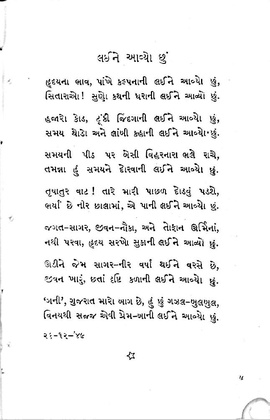 લઈને આવ્યો છું
હૃદયના ભાવ, પાંખે કલ્પનાની લઈને આવ્યો છું,
સિતારાઓ! સુણો કથની ધરાની લઈને આવ્યો છું.
હજારો કોડ, ટૂંકી જિંદગાની લઈને આવ્યો છું,
સમય થોડો અને લાંબી કહાની લઈને આવ્યો છું.
સમયની પીઠ પર બેસી વિહરનારા ભલે રાચે,
તમન્ના હું સમયને દોરવાની લઈને આવ્યો છું.
તૃષાતુર વાટ! તારે મારી પાછળ દોડવું પડશે,
ભર્યાં છે નીર છાલામાં, એ પાની લઈને આવ્યો છું.
જગત-સાગર, જીવન-નૌકા, અને તોફાન ઊર્મિનાં,
નથી પરવા, હૃદય સરખો સુકાની લઈને આવ્યો છું.
ઊડીને જેમ સાગર-નીર વર્ષા થઈને વરસે છે,
જીવન ખારું, છતાં દૃષ્ટિ કળાની લઈને આવ્યો છું.
‘ગની’, ગુજરાત મારો બાગ છે, હું છું ગઝલ-બુલબુલ,
વિનયથી સજ્જ એવી પ્રેમ-બાની લઈને આવ્યો છું.
૨૬-૧૨-'૪૫
૫